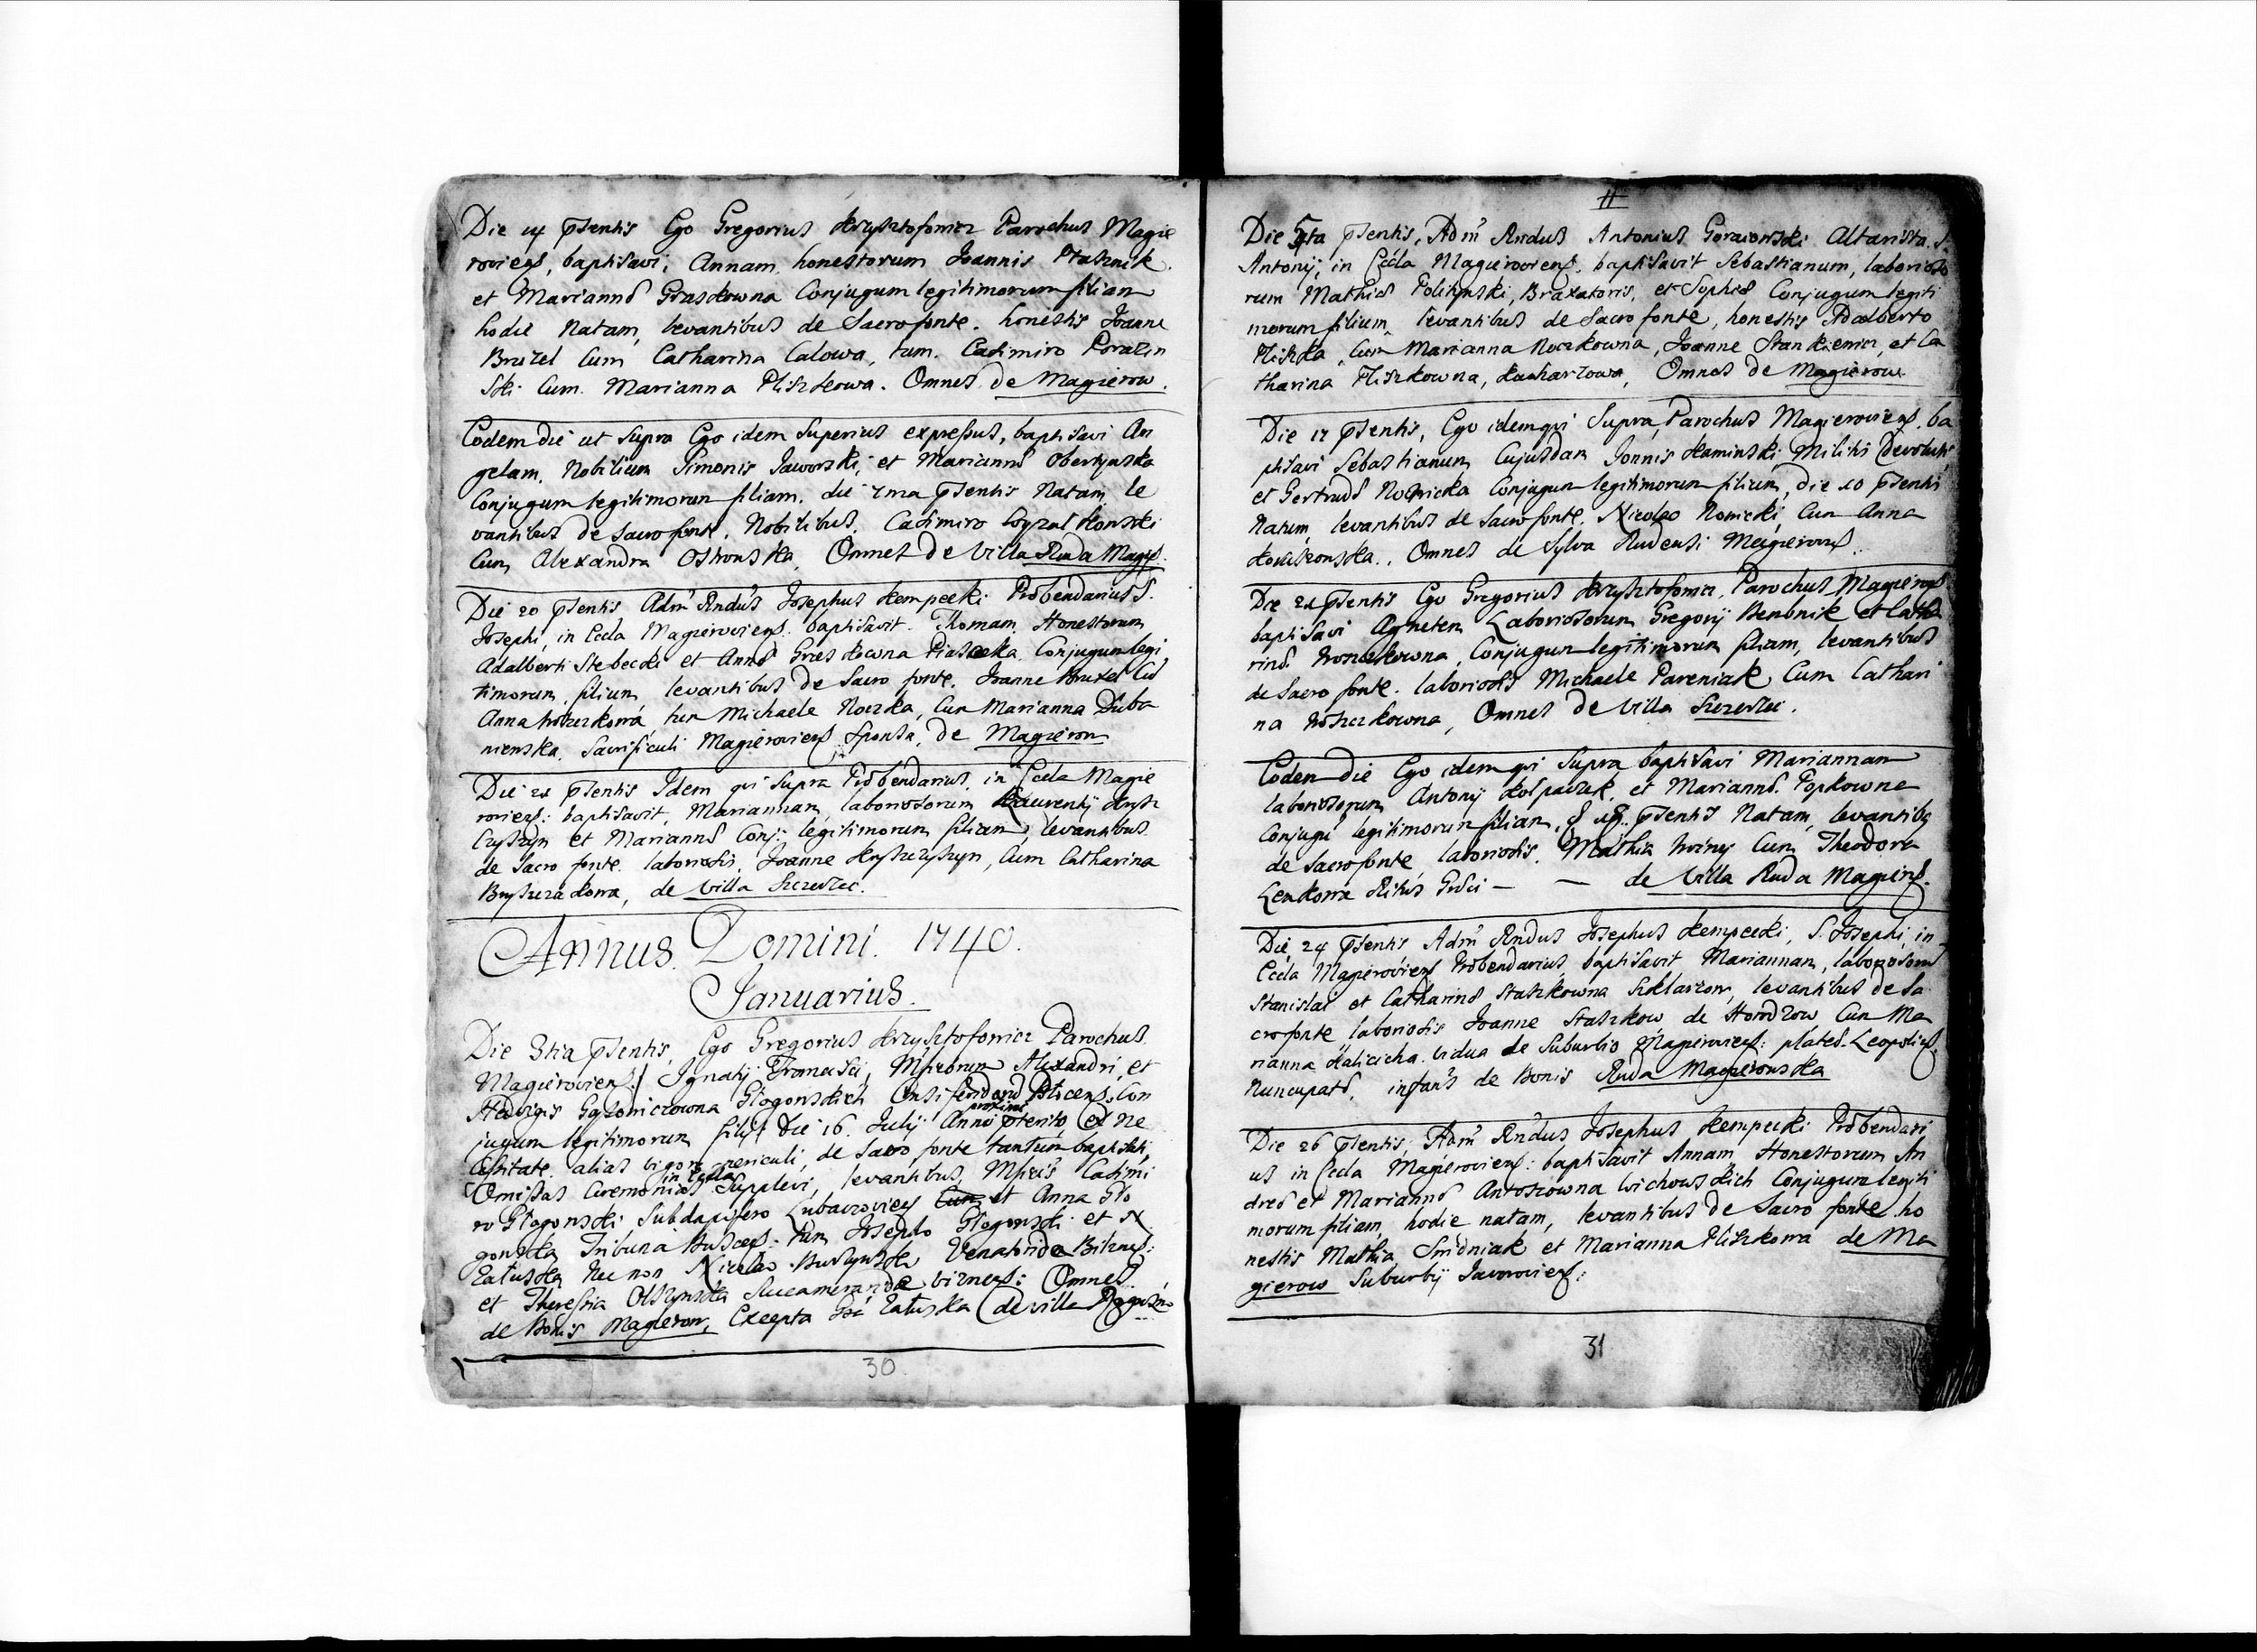 Die 14 pſentis Ego Gregorius Krzysztofowicz Parochus Magie
rovienſ, baptisavi, Annam, honestorum Joannis Ptasznik
et Mariannæ Graszkowna Conjugum legitimorum filiam
hodie Natam, levantibus de Sacro fonte. honestis Joanne
Bruzel Cum Catharina Calowa, tum. Casimiro Porazin
ski Cum Marianna Pliszkowa. Omnes de Magierow.
Eodem die ut supra Ego idem Superius expreſsus, baptisavi An
gelam, Nobilium Simonis Jaworski, et Mariannæ Obertynska
Conjugum legitimorum filiam. die 7ma pſentis Natam le
vantibus de Sacro fonte. Nobilibus. Casimiro
Cum Alexandra Ostrowska, Omnes de Villa Ruda Magiſ.
Die 20 pſentis Adm Rndus Josephus Kempecki Præbendarius S.
Josephi, in Eccla Magierovienſ. baptisavit. Thomam. Honestorum
Adalberti Stebecki et Annæ Conjugum legi
timorum filium levantibus de Sacro fonte. Joanne Bruzel Cū
Anna tum Michaele Noczka, Cum Marianna Duba
niewska. Sacrificuli Magierovienſ Sponsa, de Magierow
Die 21 pſentis Idem qui Supra Præbendarius, in Eccla Magie
rovienſ: baptisavit, Mariannam, laboriosorum Laurentij Krysz
czyszyn et Mariannæ Conj: legitimorum filiam, levantibus
de Sacro fonte. laboriosis. Joanne Kryszczyszyn, Cum Catharina
de Villa Szczerzec.
Annus Domini. 1740.
Januarius.
Die 3tia pſentis, Ego Gregorius Krzysztofowicz Parochus
Magierovienſ: Ignatij Francisci, Alexandri, et
Hedvigis Głogowskich Con
jugum legitimorum filij die 16. Julij Anni
proxime
pterito, ex Ne
ceſsitate alias vigore periculi, de Sacro fonte tantum baptisati,
in Eccla
Omiſsas Ceremonias Supplevi, levantibus, Casimi
ro Głogowski Subdapifero Lubaczovienſ Cum et Anna Gło
gowska Tribuna Buscenſ. tum Josepho Głogowski et N.
Załuska Nec non Nicolao
et Thereſsia Olszynska Omnes
de Bonis Magierow, Excepta Załuska de villa
30
11
Die 5ta pſentis, Adm Rndus Antonius Goraiowski Altarista S.
Antonij, in Eccla Magierovienſ. baptisavit Sebastianum, laborioso
rum Mathiæ Politynski, Braxatoris, et Sophiæ Conjugum legiti
morum filium, levantibus de Sacro fonte, honestis Adalberto
Pliszka, Cum Marianna Noczkowna, Joanne Stankiewicz, et Ca
tharina Pliszkowna, Omnes de Magierow
Die 12 pſentis, Ego idem qui Supra, Parochus Magierovienſ. ba
ptisavi Sebastianum Cujusdam Joannis Kaminski Militis
et Gertrudæ Nowicka Conjugum legitimorum filium, die 10 pſentis
Natum, levantibus de Sacro fonte. Nicolao Nowicki, Cum Anna
Omnes de Sylva Rudensi Magierovienſ.
Die 21 pſentis Ego Gregorius Krzysztofowicz, Parochus Magierovſ:
baptisavi Agnetem Laboriosorum Gregorij Benbnik et Catha
rinæ Woszczkowna, Conjugum legitimorum filiam, levantibus
de Sacro fonte. laboriosis Michaele Pareniak Cum Cathari
na Woszczkowna, Omnes de Villa Szczerzec.
Eodem die Ego idem qui Supra baptisavi Mariannam
laboriosorum Antonij Kolpaczek, et Mariannæ. Popkowna
Conjugū legitimorum filiam, pſentis Natam, levantibꝫ
de Sacro fonte laboriosis. Mathia Wozny Cum Theodora
Lenkowa Ritus Græci — — de Villa Ruda Magierſ.
Die 24 pſentis Adm Rndus Josephus Kempecki, S. Josephi, in
Eccla Magierovienſ Præbendarius, baptisavit Mariannam, laboriosorū
Stanislai et Catharinæ Staszkowna Szklarzow, levantibus de Sa
cro fonte, laboriosis Joanne Staszkow de Horodzow Cum Ma
rianna Halicicha. vidua de Suburbio Magierovienſ: plateæ Leopolienſ.
Nuncupatæ, infans de Bonis Ruda Magierowska
Die 26 pſentis, Adm Rndus Josephus Kempecki Præbendari
us in Eccla Magierovienſ: baptisavit Annam Honestorum An
dreæ et Mariannæ Antoszowna Wichowskich Conjugum legiti
morum filiam, hodie natam, levantibus de Sacro fonte. ho
nestis Mathia Smidniak et Marianna Pliszkowa de Ma
gierow Suburbij Javorovienſ:
31